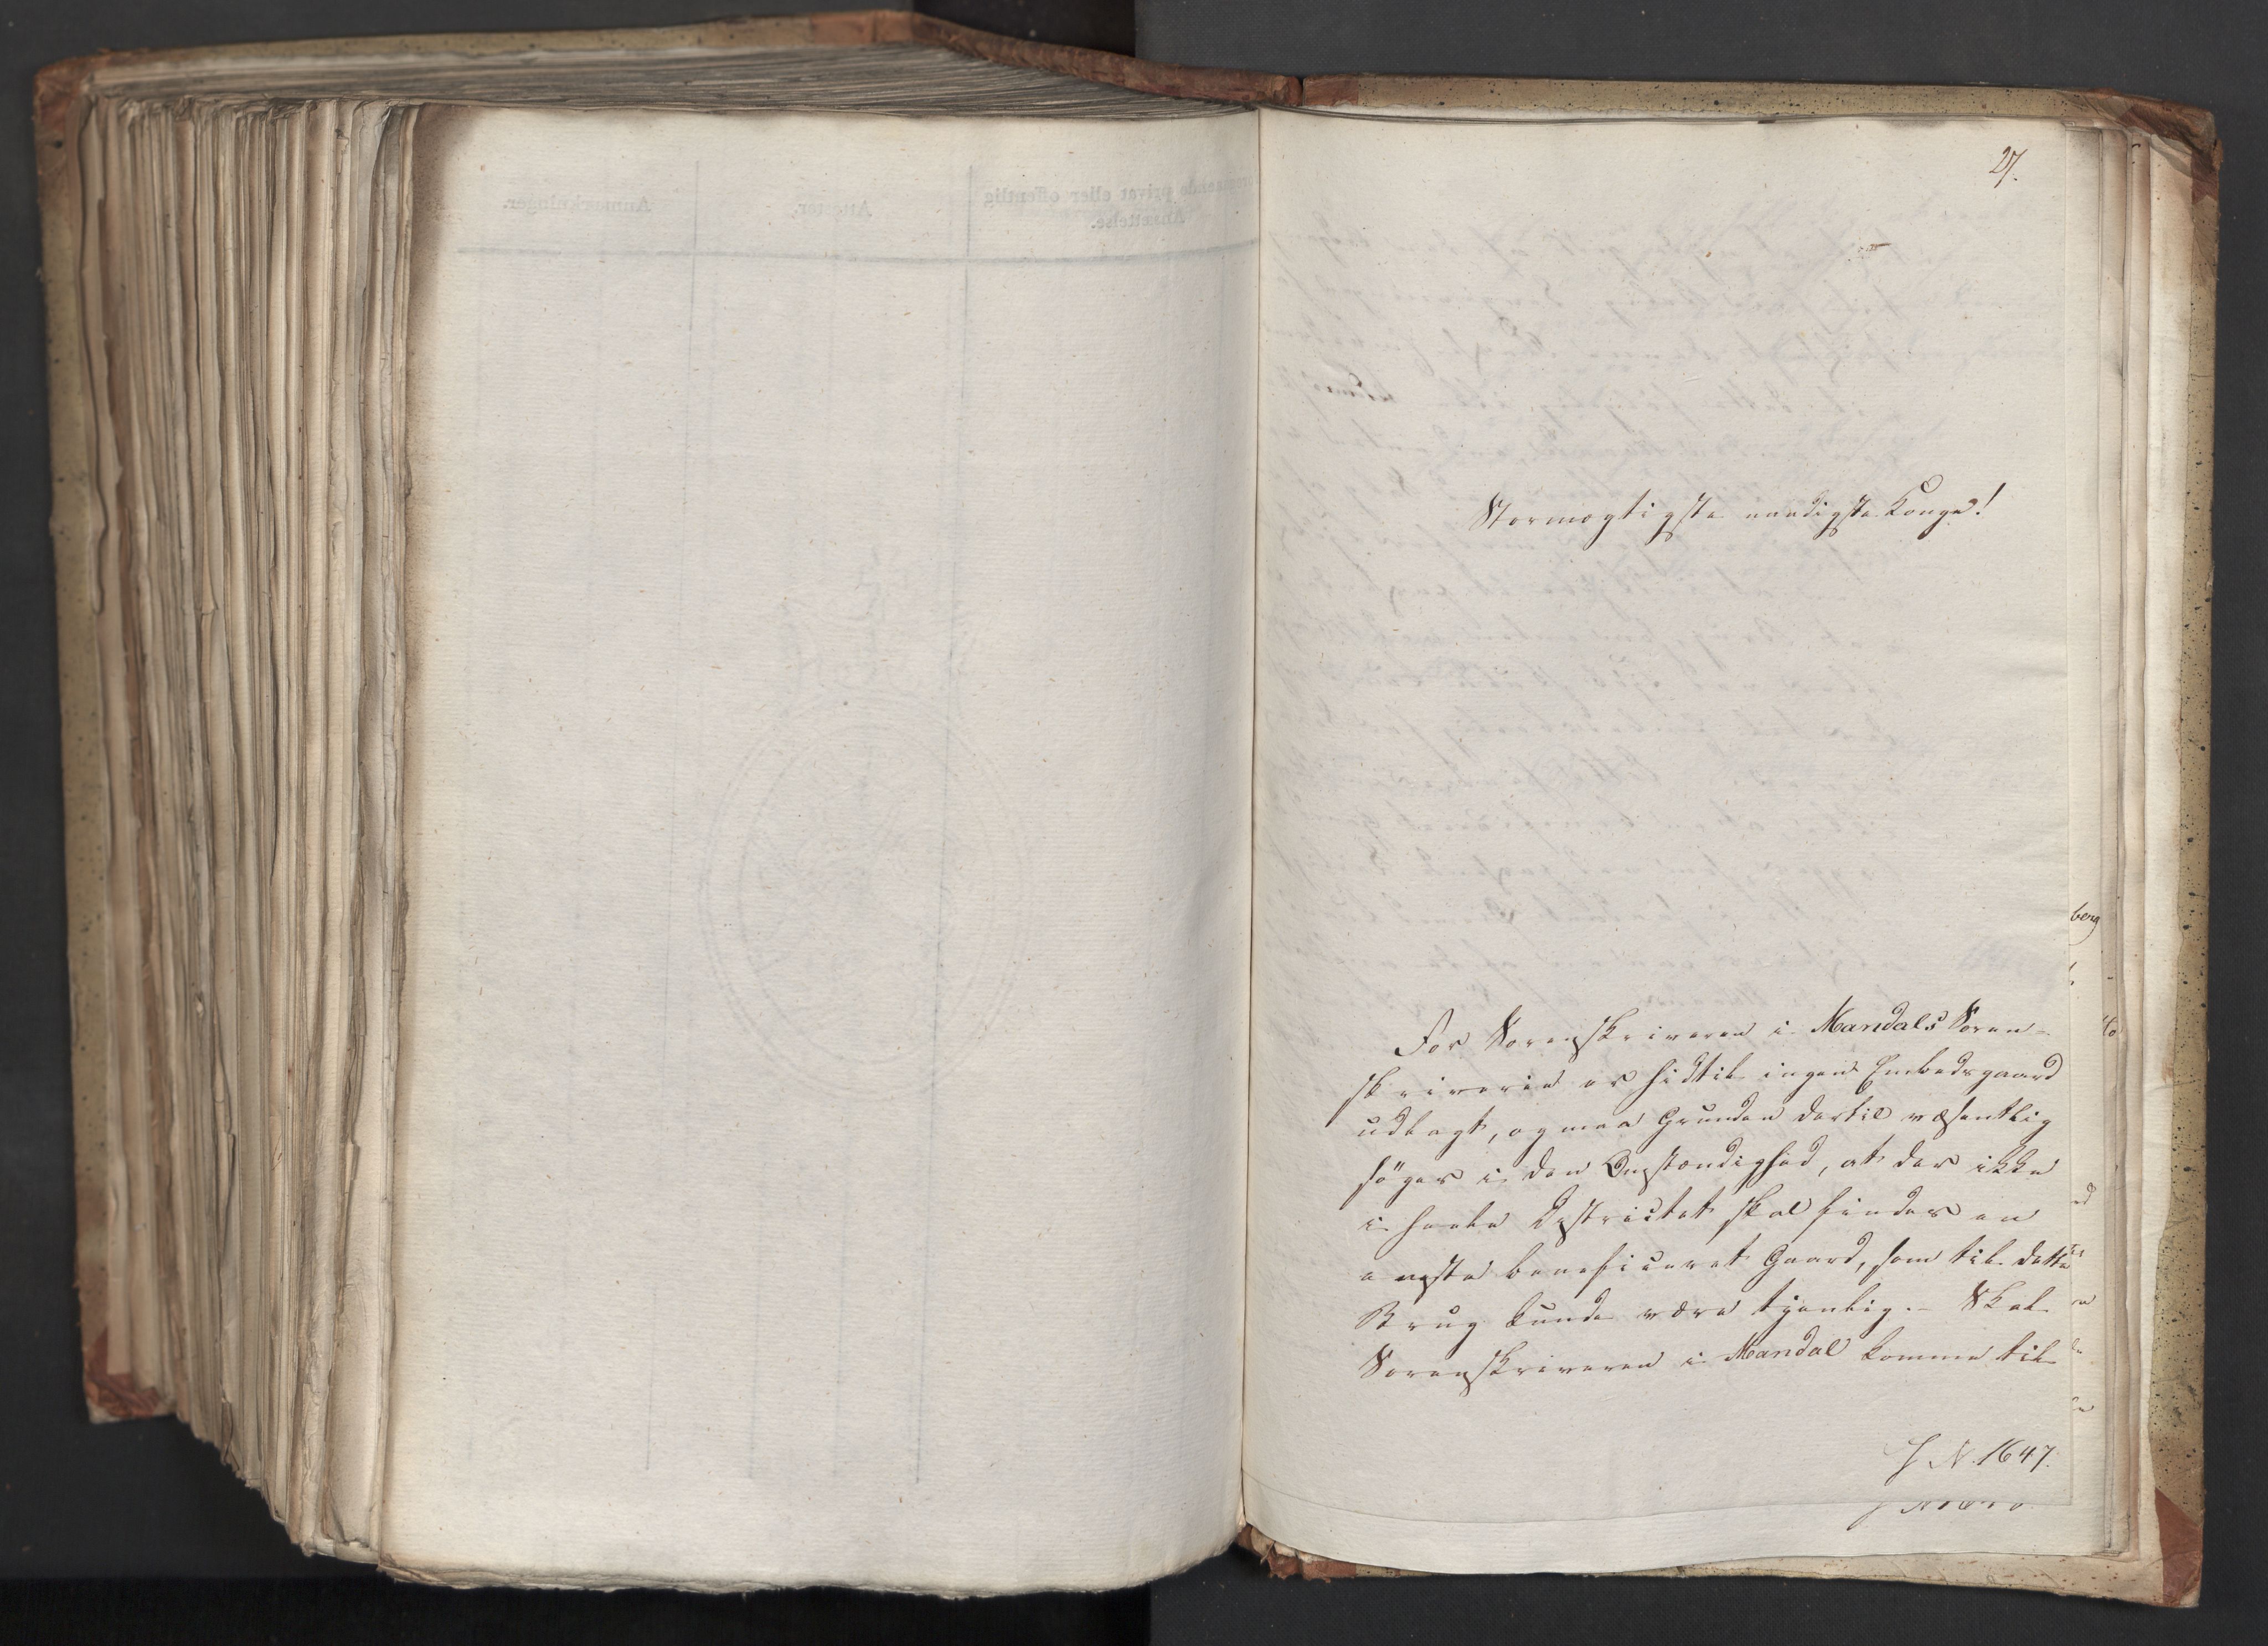 27.
Stormægtigste naadigste Konge!
For Sorenskriveren i Mandals Soren-
skriverie er hidtil ingen Embedsgaard
udlagt, og maa Grunden dertil væsentlig
söges i den Omstændighed, at der ikke
i heele Districtet skal findes en
eneste beneficeret Gaard, som til dette
Brug kunde være tjenlig. - Skal
Sorenskriveren i Mandal komme til
J. N. 1647.
berg